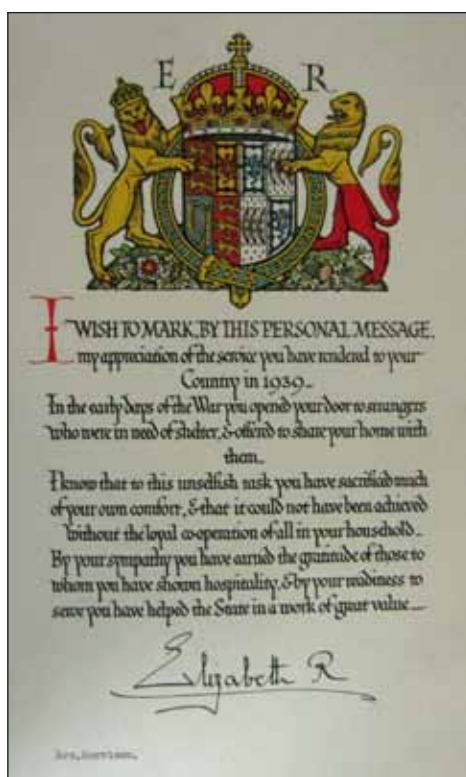 E R
I WISH TO MARK, BY THIS PERSONAL MESSAGE,
my appreciation of the service you have rendered to your
Country in 1939_
In the early days of the War you opened your door to strangers
who were in need of shelter, & offered to share your home with
them_
I know that to this unselfish task you have sacrificed much
of your own comfort, & that it could not have been achieved
without the loyal co-operation of all in your household_
By your sympathy you have earned the gratitude of those to
whom you have shown hospitality, & by your readiness to
serve you have helped the State in a work of great value_
Elizabeth R
Mrs.